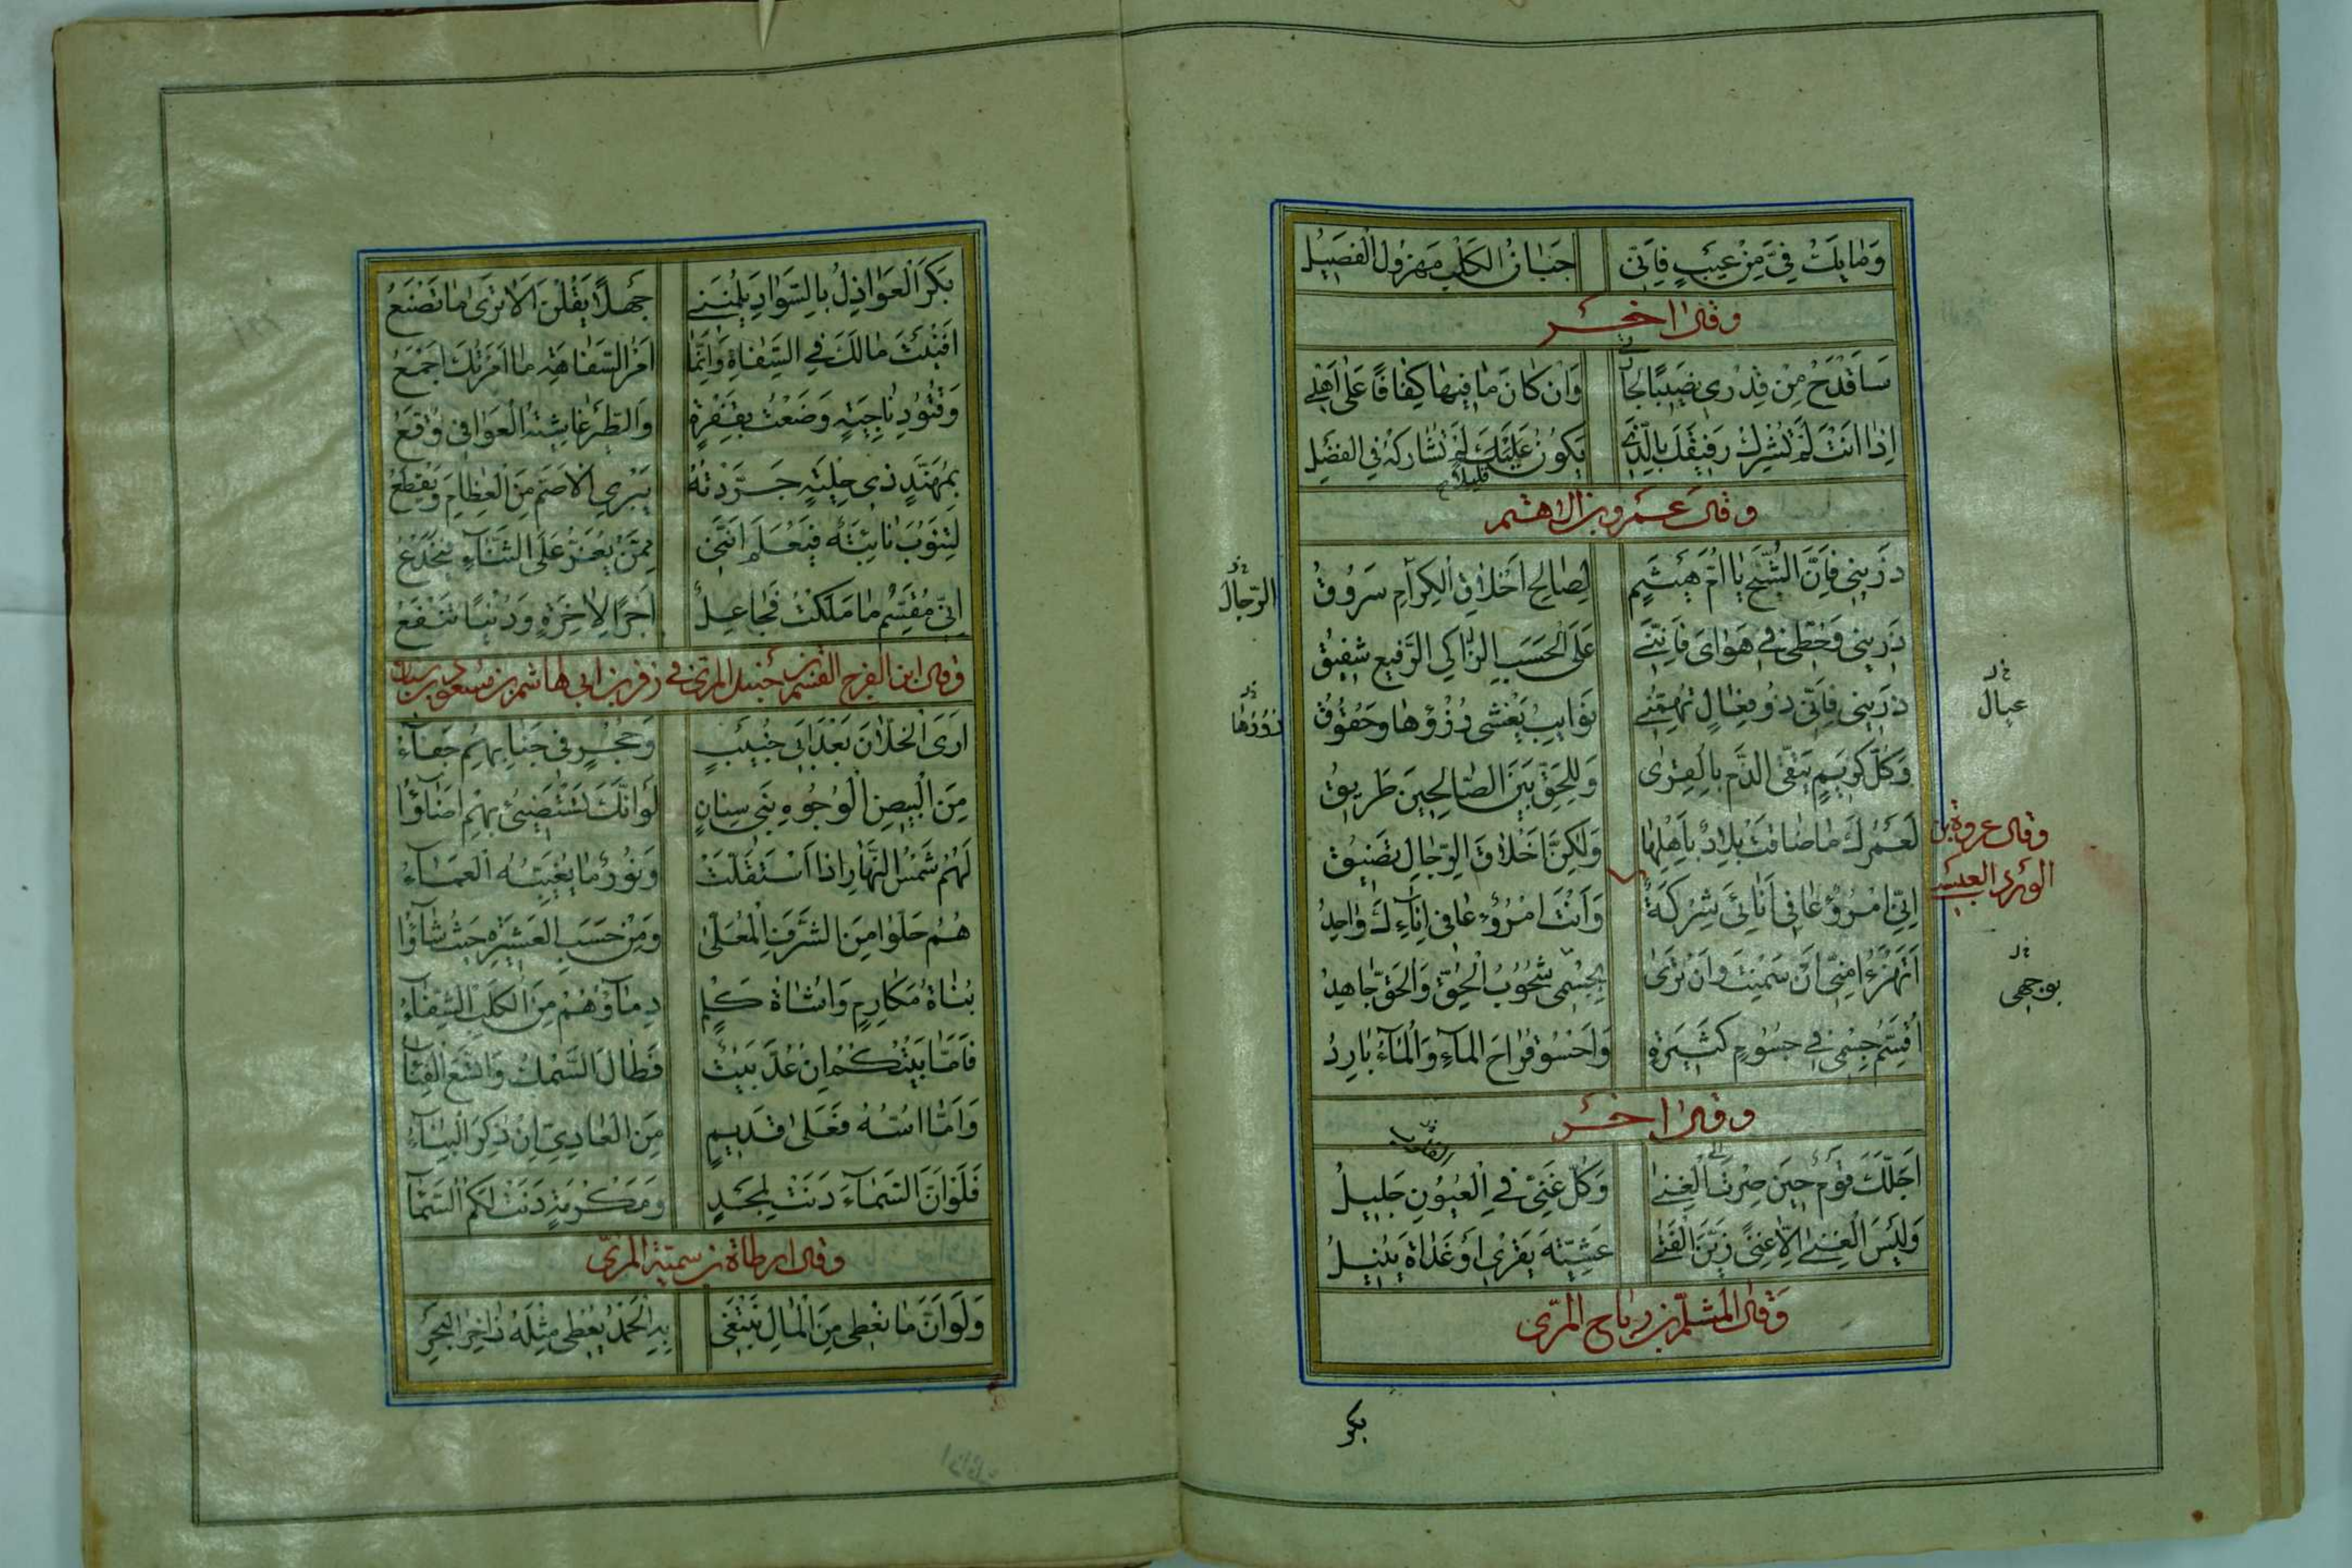 وَمَا يَكُ فِيَّ مِنْ عَيْبٍ فَاِنِّي جَبَانُ الكَلْبِ مَهْزُولُ الْفَصِيْلِ
وقال اخر
سَاَقْدَحُ مِنْ قِدْرِي نَصِيْبًا لِجَارَتِي وَاِنْ كَانَ مَا فِيهَا كَفَافًا عَلَى اَهْلِي
اِذَا اَنْتَ لَمْ تُشْرِكْ رَفِيْقَكَ بِالَّذِي يَكُونُ عَلَيْكَ لَمْ تُشَارِكْهُ فِي الفَضْلِ
قليلا
وقال عمرو بن الاهتم
ذَرِينِي فَاِنَّ الشُّحَّ يَا اُمَّ هَيْثَمٍ لِصَالِحِ اَخْلَاقِ الْكِرَامِ سَرُوقُ
الرّجال
ذَرِينِي وَحُطِّي فِي هَوَايَ فَاِنَّنِي عَلَى الْحَسَبِ الزَّاكِي الرَّفِيعِ شَفِيْقُ
ذَرِينِي فَاِنِّي ذُو فِعَالٍ تُهِمُّنِي نَوَايِبُ يَغْشَى رُزْؤُهَا وَحُقُوقُ
عيال
وَكُلُّ كَرِيْمٍ يَتَّقِي الذَّمَّ بِالْقِرَى وَلِلْحَقِّ بَيْنَ الصَّالِحِينَ طَرِيقُ
لَعَمْرُكَ مَا ضَاقَتْ بِلَادٌ بِاَهْلِهَا وَلٰكِنَّ اَخْلَاقَ الرِّجَالِ تَضِيْقُ
وقال عروة بن
الورد العبسي
اِنِّي امْرُؤٌ عَافِي اِنَائِي شِرْكَةٌ وَاَنْتَ امْرُؤٌ عَافِي اِنَاءِكَ وَاحِدُ
اَتَهْزَءُ مِنِّي اَنْ سَمِنْتَ وَاَنْ تَرَى بِجِسْمِي شُحُوبُ الْحَقِّ وَالْحَقُّ جَاهِدُ
بوجهى
اُقَسِّمُ جِسْمِي فِي جُسُومٍ كَثِيرَةٍ وَاَحْسُو قَرَاحَ المَاءِ وَالْمَاءُ بَارِدُ
وقال اخر
اَجَلَّكَ قَوْمٌ حِينَ صِرْتَ اِلَى الْغِنَى وَكُلُّ غَنِيٍّ فِي الْعُيُونِ جَلِيلُ
وَلَيْسَ الْغِنَى اِلَّا غِنًى زَيَّنَ الْفَتَى عَشِيَّةَ يَقْرِي اَوْ غَدَاةَ يُنِيلُ
وَقال المثلّم بن رياح المرّى
بكر
بَكَرَ الْعَوَاذِلُ بِالسَّوَادِ يَلُمْنَنِي جَهْلًا يَقُلْنَ اَلَا تَرَى مَا تَصْنَعُ
اَفَنَيْتَ مَالَكَ فِي السَّفَاهِ وَاِنَّمَا اَمْرُ السَّفَاهَةِ مَا اَمَرْنَكَ اَجْمَعُ
وَقُتُودِ نَاجِيَةٍ وَضَعْتُ بِقَفْرَةٍ وَالطَّيْرُ غَاشِيَةُ الْعَوَافِي وُقَّعُ
بِمُهَنَّدٍ ذِي حِلْيَةٍ جَرَّدْتُهُ يَبْرِي الْاَصَمَّ مِنَ الْعِظَامِ وَيَقْطَعُ
لِتَنُوبَ نَائِبَةٌ فَيَعْلَمَ اَنَّنِي مِمَّنْ يُغَرُّ عَلَى الثَّنَاءِ فَيُخْدَعُ
اِنِّي مُقَسِّمُ مَا مَلَكْتُ فَجَاعِلٌ اَجْرًا لِاٰخِرَةٍ وَدُنْيَا تَنْفَعُ
وقال ابن الفرج القسم بن حنبل المرّى في زفر بن ابي هاشم بن مسعود بن سنان
اَرَى الْخُلَّانَ بَعْدَ اَبِي خُبَيْبٍ وَحُجْرٍ فِي جَنَابِهِمِ جَفَاءُ
مِنَ الْبِيْضِ الْوُجُوهِ بَنِي سِنَانٍ لَوَ اَنَّكَ تَسْتَضِيئُ بِهِمِ اَضَاؤُا
لَهُمْ شَمْسُ النَّهَارِ اِذَا اسْتَقَلَّتْ وَنُورٌ مَا يُغَيِّبُهُ الْعَمَاءُ
هُمُ حَلُّوا مِنَ الشَّرَفِ الْمُعَلَّى وَمِنْ حَسَبِ الْعَشِيرَةِ حَيْثُ شَاؤُا
بُنَاةُ مَكَارِمٍ وَاُسَاةُ كَلْمٍ دِمَاؤُهُمُ مِنَ الْكَلَبِ الشِّفَاءُ
فَاَمَّا بَيْتُكُمْ اِنْ عُدَّ بَيْتٌ فَطَالَ السَّمْكُ وَاتَّسَعَ الْفِنَاءُ
وَاَمَّا اُسُّهُ فَعَلَى قَدِيْمٍ مِنَ الْعَادِيِّ اِنْ ذُكِرَ الْبِنَاءُ
فَلَوْ اَنَّ السَّمَاءَ دَنَتْ لِمَجْدٍ وَمَكْرُمَةٍ دَنَتْ لَكُمُ السَّمَاءُ
وقال ارطاة بن سميّة المرّى
وَلَوْ اَنَّ مَا نُعْطِي مِنَ الْمَالِ نَبْتَغِي بِهِ الْحَمْدَ يُعْطِي مِثْلَهُ زَاخِرُ الْبَحْرِ